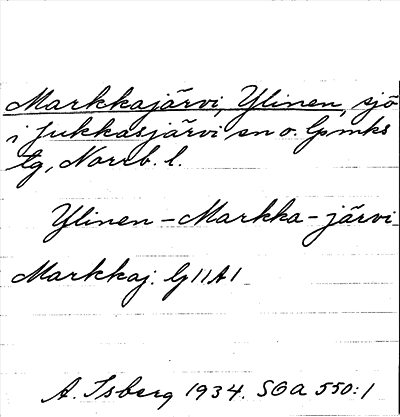 Markkajärvi, Ylinen, sjö
i Jukkasjärvi sn o. Lpmks
tg, Norrb. l.
Ylinen-Markka-järvi
Markkaj. G11A1
A. Isberg 1934. SOA 550:1